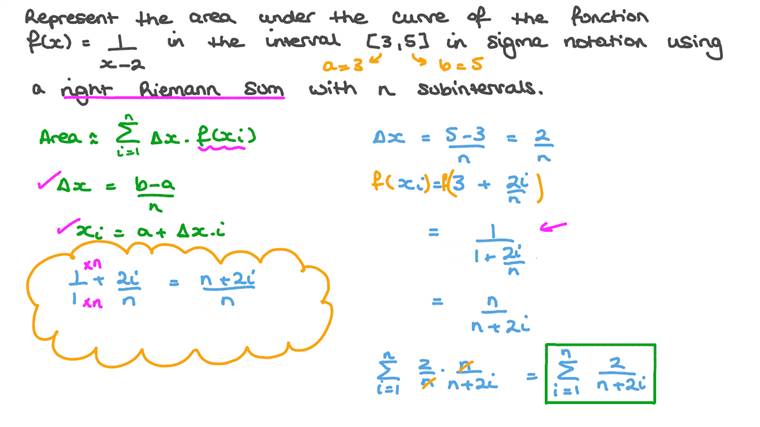 Represent the area under the curve of the function
f(x) = 1/(x-2) in the interval [3,5] in sigma notation using
a=3 b=5
a right Riemann Sum with n subintervals.
Area ≈ \sum_{i=1}^{n} Δx · f(xi)
Δx = (b-a)/n
xi = a + Δx·i
1/1 ×n ×n + 2i/n = (n+2i)/n
Δx = (5-3)/n = 2/n
f(xi) = f(3 + 2i/n)
= 1/(1 + 2i/n)
= n/(n+2i)
\sum_{i=1}^{n} 2/n · n/(n+2i) = \sum_{i=1}^{n} 2/(n+2i)